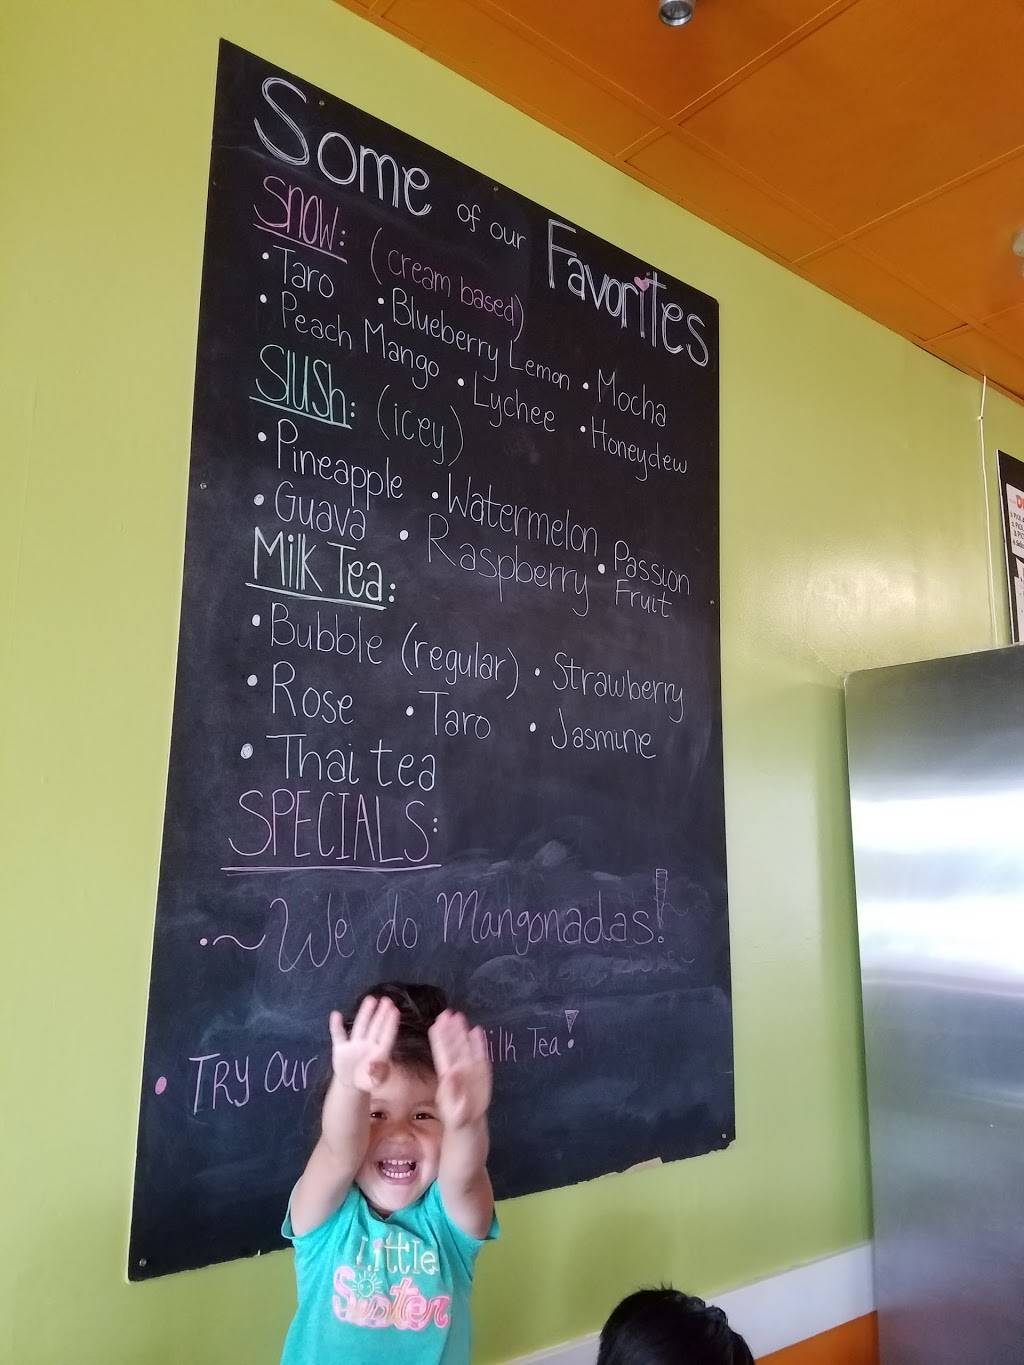 Some of our Favorites
Snow: (cream based)
• Taro • Blueberry Lemon • Mocha
• Peach Mango • Lychee • Honeydew
Slush: (icey)
• Pineapple • Watermelon • Passion Fruit
• Guava • Raspberry
Milk Tea:
• Bubble (regular) • Strawberry
• Rose • Taro • Jasmine
• Thai tea
SPECIALS:
• ~ We do Mangonadas!
• TRY our ilk Tea!
Little
Sister